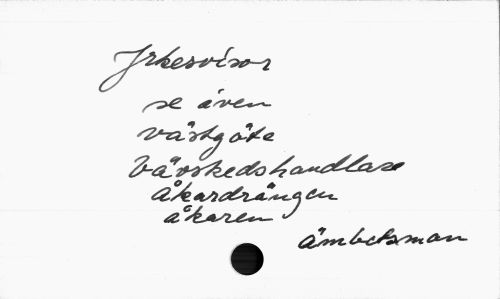 Yrkesvisor
se även
västgöte
Vävskedshandlare
åkardrängen
åkaren
ämbetsman